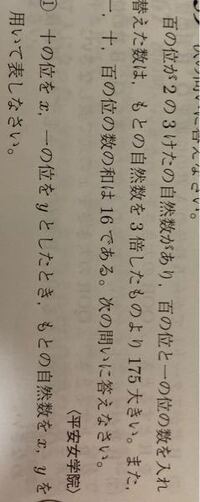 次の問いに答えなさい。
百の位が2の3けたの自然数があり，百の位と一の位の数を入れ
替えた数は，もとの自然数を3倍したものより175大きい。また，
一，十，百の位の数の和は16である。次の問いに答えなさい。
〈平安女学院〉
① 十の位をx，一の位をyとしたとき，もとの自然数をx，yを
用いて表しなさい。